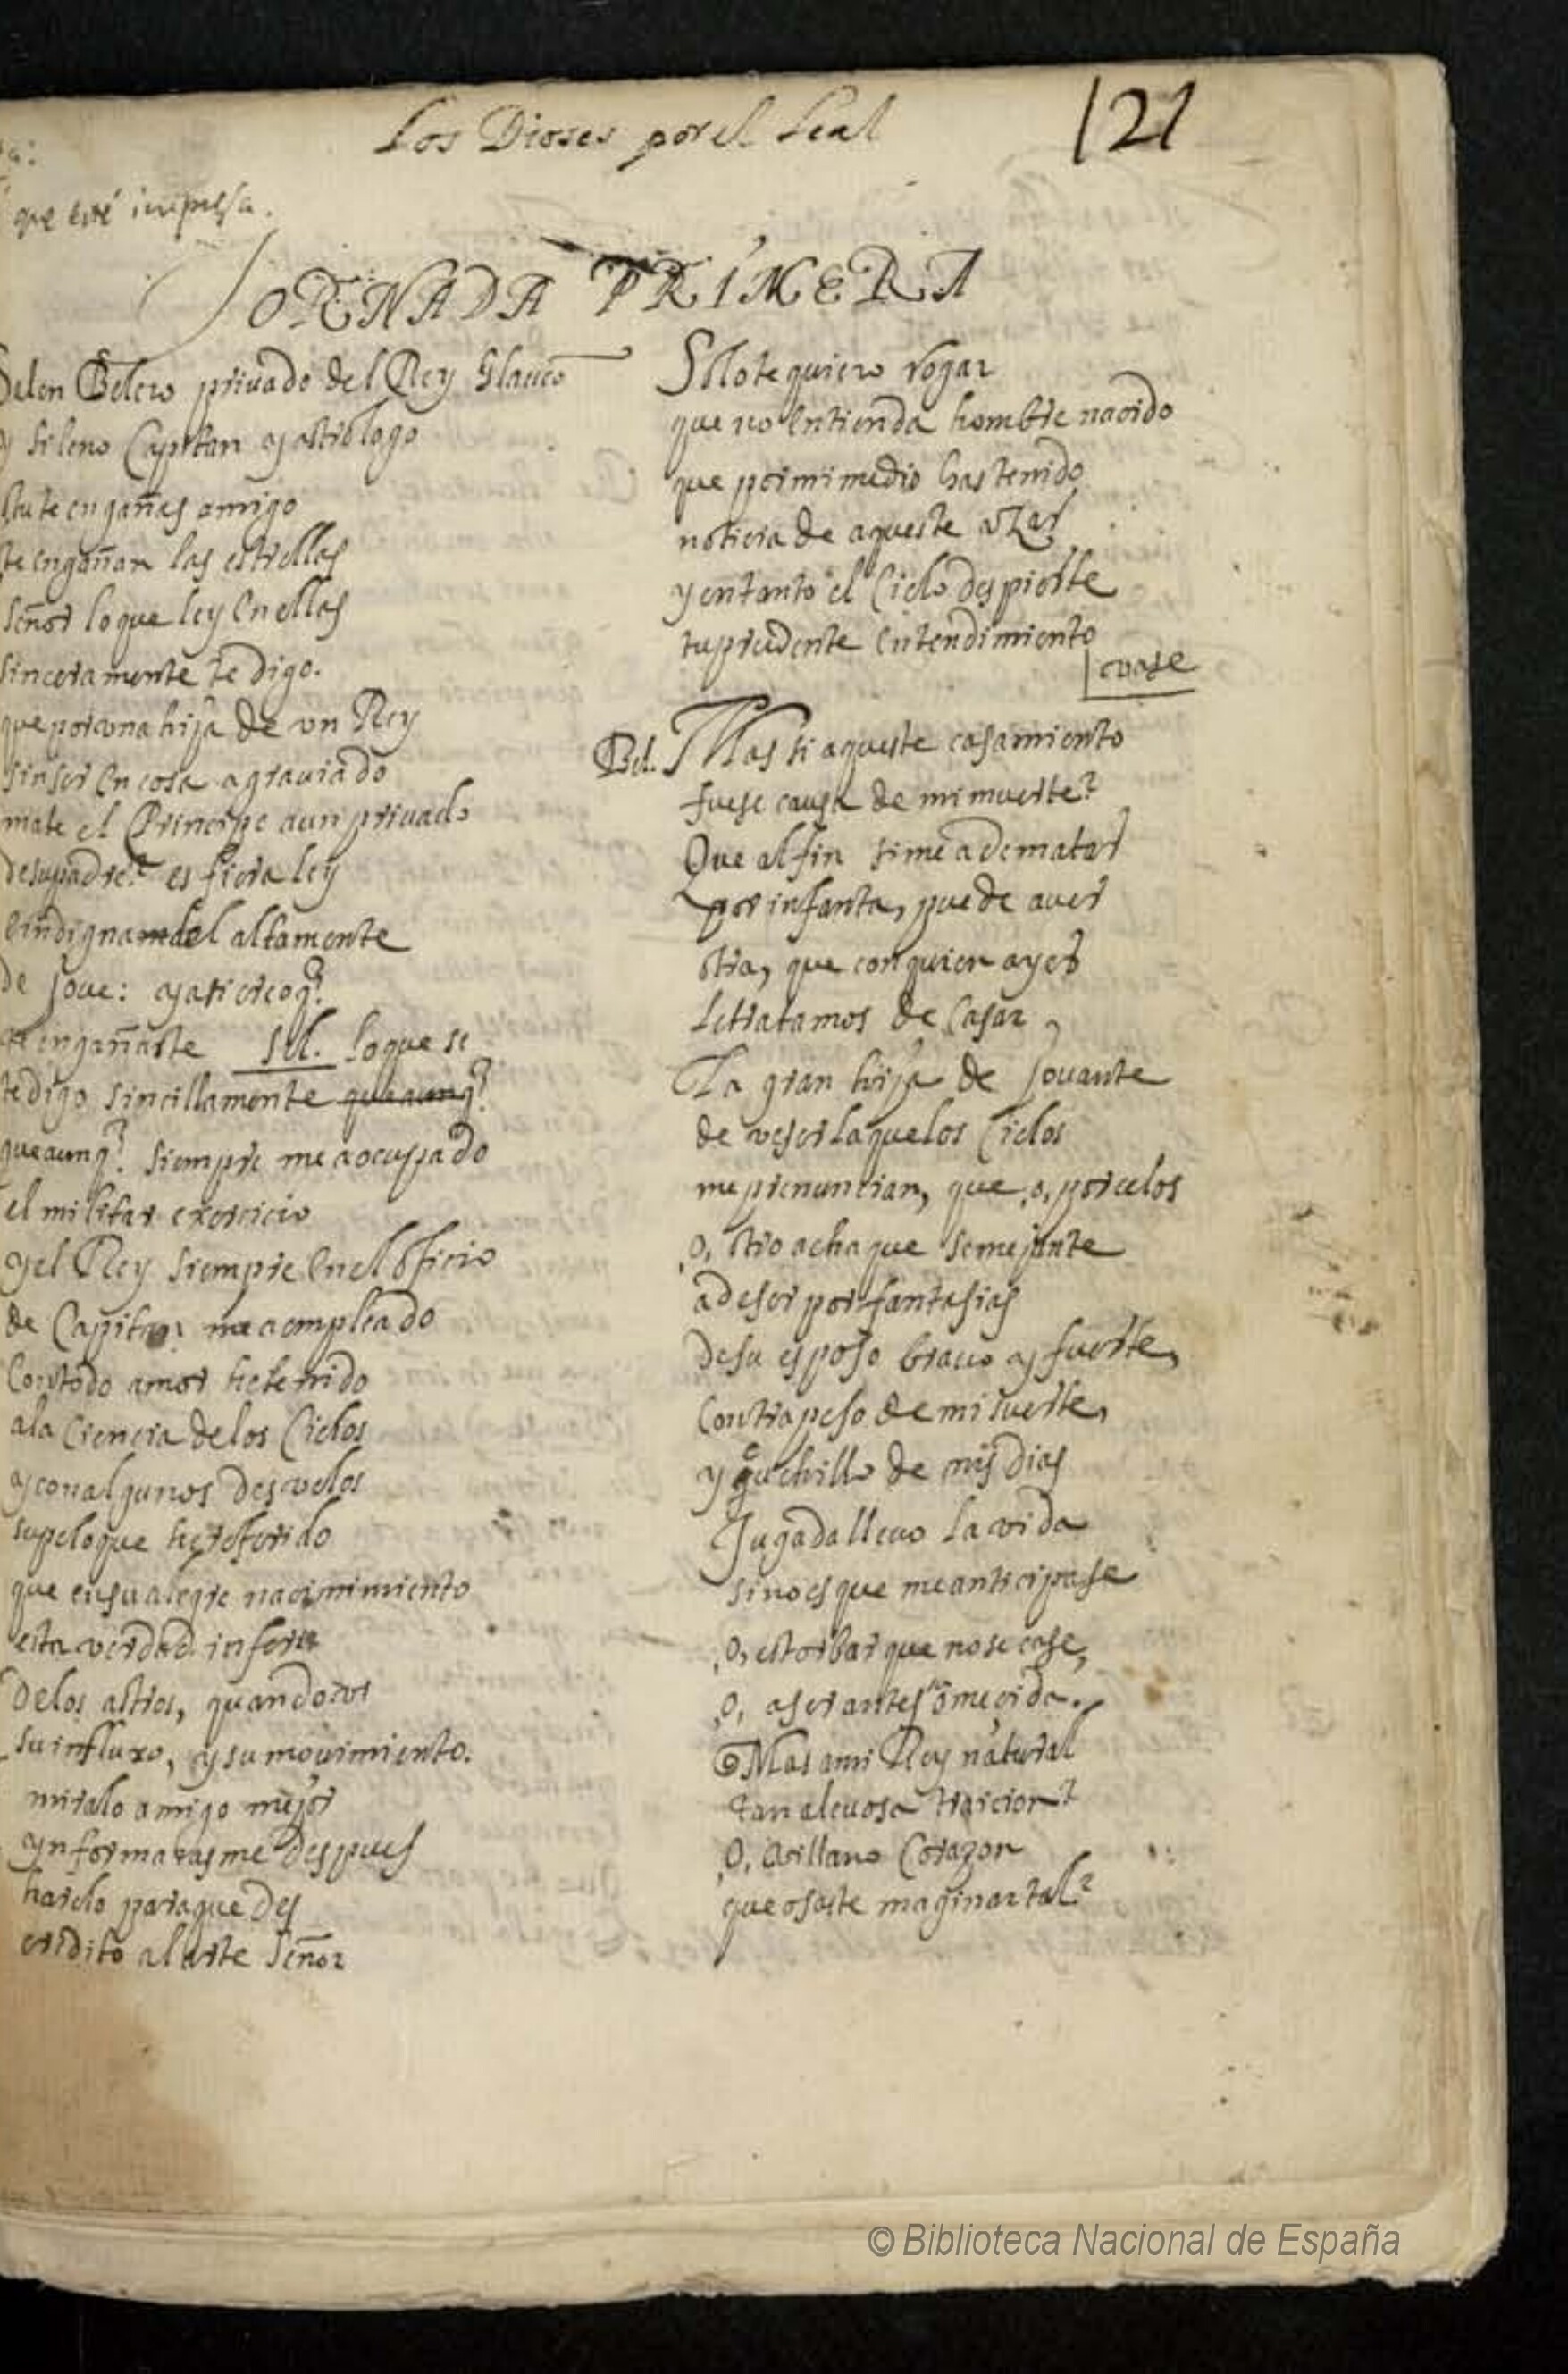 Los Dioses por el Leal
121
que esté impresa.
JORNADA PRIMERA
Salen Belero priuado del Rey Glauco
y Sileno Capitan y astrologo
tu te engañas amigo
te engañan las estrellas
señor lo que ley en ellas
sinceramente te digo.
que por una hija de vn Rey
sin ser en cosa agrauiado
mate el Principe aun priuado
de su padre? es fiera ley
e indigna del altamente
de Joue: y asi creo q̃
engañaste Sil. lo que se
te digo sincillamente queaunq̃
queaunq̃ siempre me a ocupado
el militar exercicio
y el Rey siempre en el oficio
de Capitan me a empleado
Con todo amor he tenido
a la Ciencia de los Cielos
y con algunos desvelos
supe lo que he referido
que en su alegre nacimimiento
esta verdad inferi
De los astros, quando vi
su influxo, y su mouimiento.
miralo amigo mejor
ynformarasme despues
harelo para que des
credito al arte Señor
Solo te quiero rogar
que no entienda hombre nacido
que por mi medio has tenido
noticia de aqueste azar
y en tanto el Cielo despierte
tu prudente entendimiento
vase
Bel. Mas si aqueste casamiento
fuese causa de mi muerte?
Que al fin si me a de matar
por infanta, puede auer
otra, que con quien ayer
le tratamos de Casar,
La gran hija de Jouante
de ve ser la que los Cielos
me pronuncian, que ,o, por celos
,o, otro achaque semejante
a de ser por fantasias
de su esposo brauo y fuerte,
Contrapeso de mi suerte,
y cuchillo de mis dias
Jugada lleuo la vida
sino es que me anticipase
,o, estorbar que no se case,
,o, a ser antes omicida.
Mas a mi Rey natural
tan aleuosa traicion?
,O, villano Corazon
que osaste maginar tal?
© Biblioteca Nacional de España